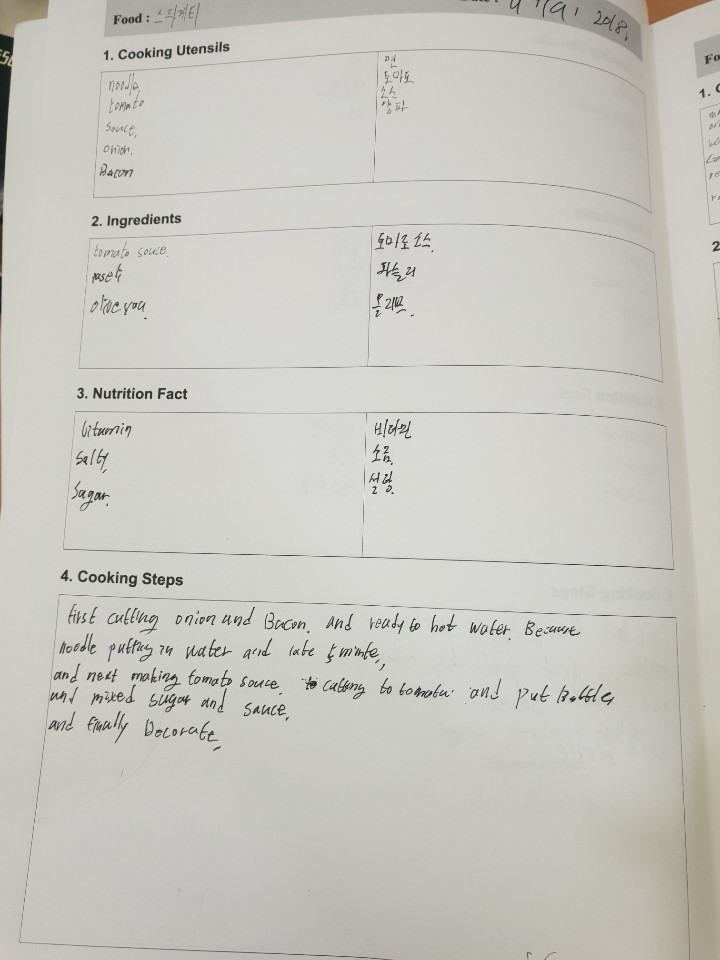 Food : 스파게티
2018.
1. Cooking Utensils
noodle 면
tomato 토마토
souce, 소스
onion. 양파
Bacon
2. Ingredients
tomato souce. 토마토 소스.
파슬리
올리브.
3. Nutrition Fact
Vitamin 비타민
Salty, 소금.
Sagar. 설탕.
4. Cooking Steps
first cutting onion and Bacon. and ready to hot water. Because
noodle putting in water and late 5 minte,
and next making tomato souce. cutting to tomato. and put
and mixed sugar and sauce.
and finally Decorate,